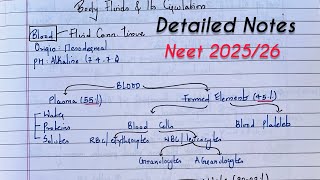 Body Fluids & Its Cyulation
Detailed Notes
Blood → Fluid Conn. Tissue
Neet 2025/26
Origin: Mesodermal
pH: Alkaline (7.4
BLOOD
Plasma (55%) Formed Elements (45%)
Water
Proteins
Solutes
Blood Cells Blood Platelets
RBC/erythrocytes WBC/leucocytes
Granulocytes AGranulocytes